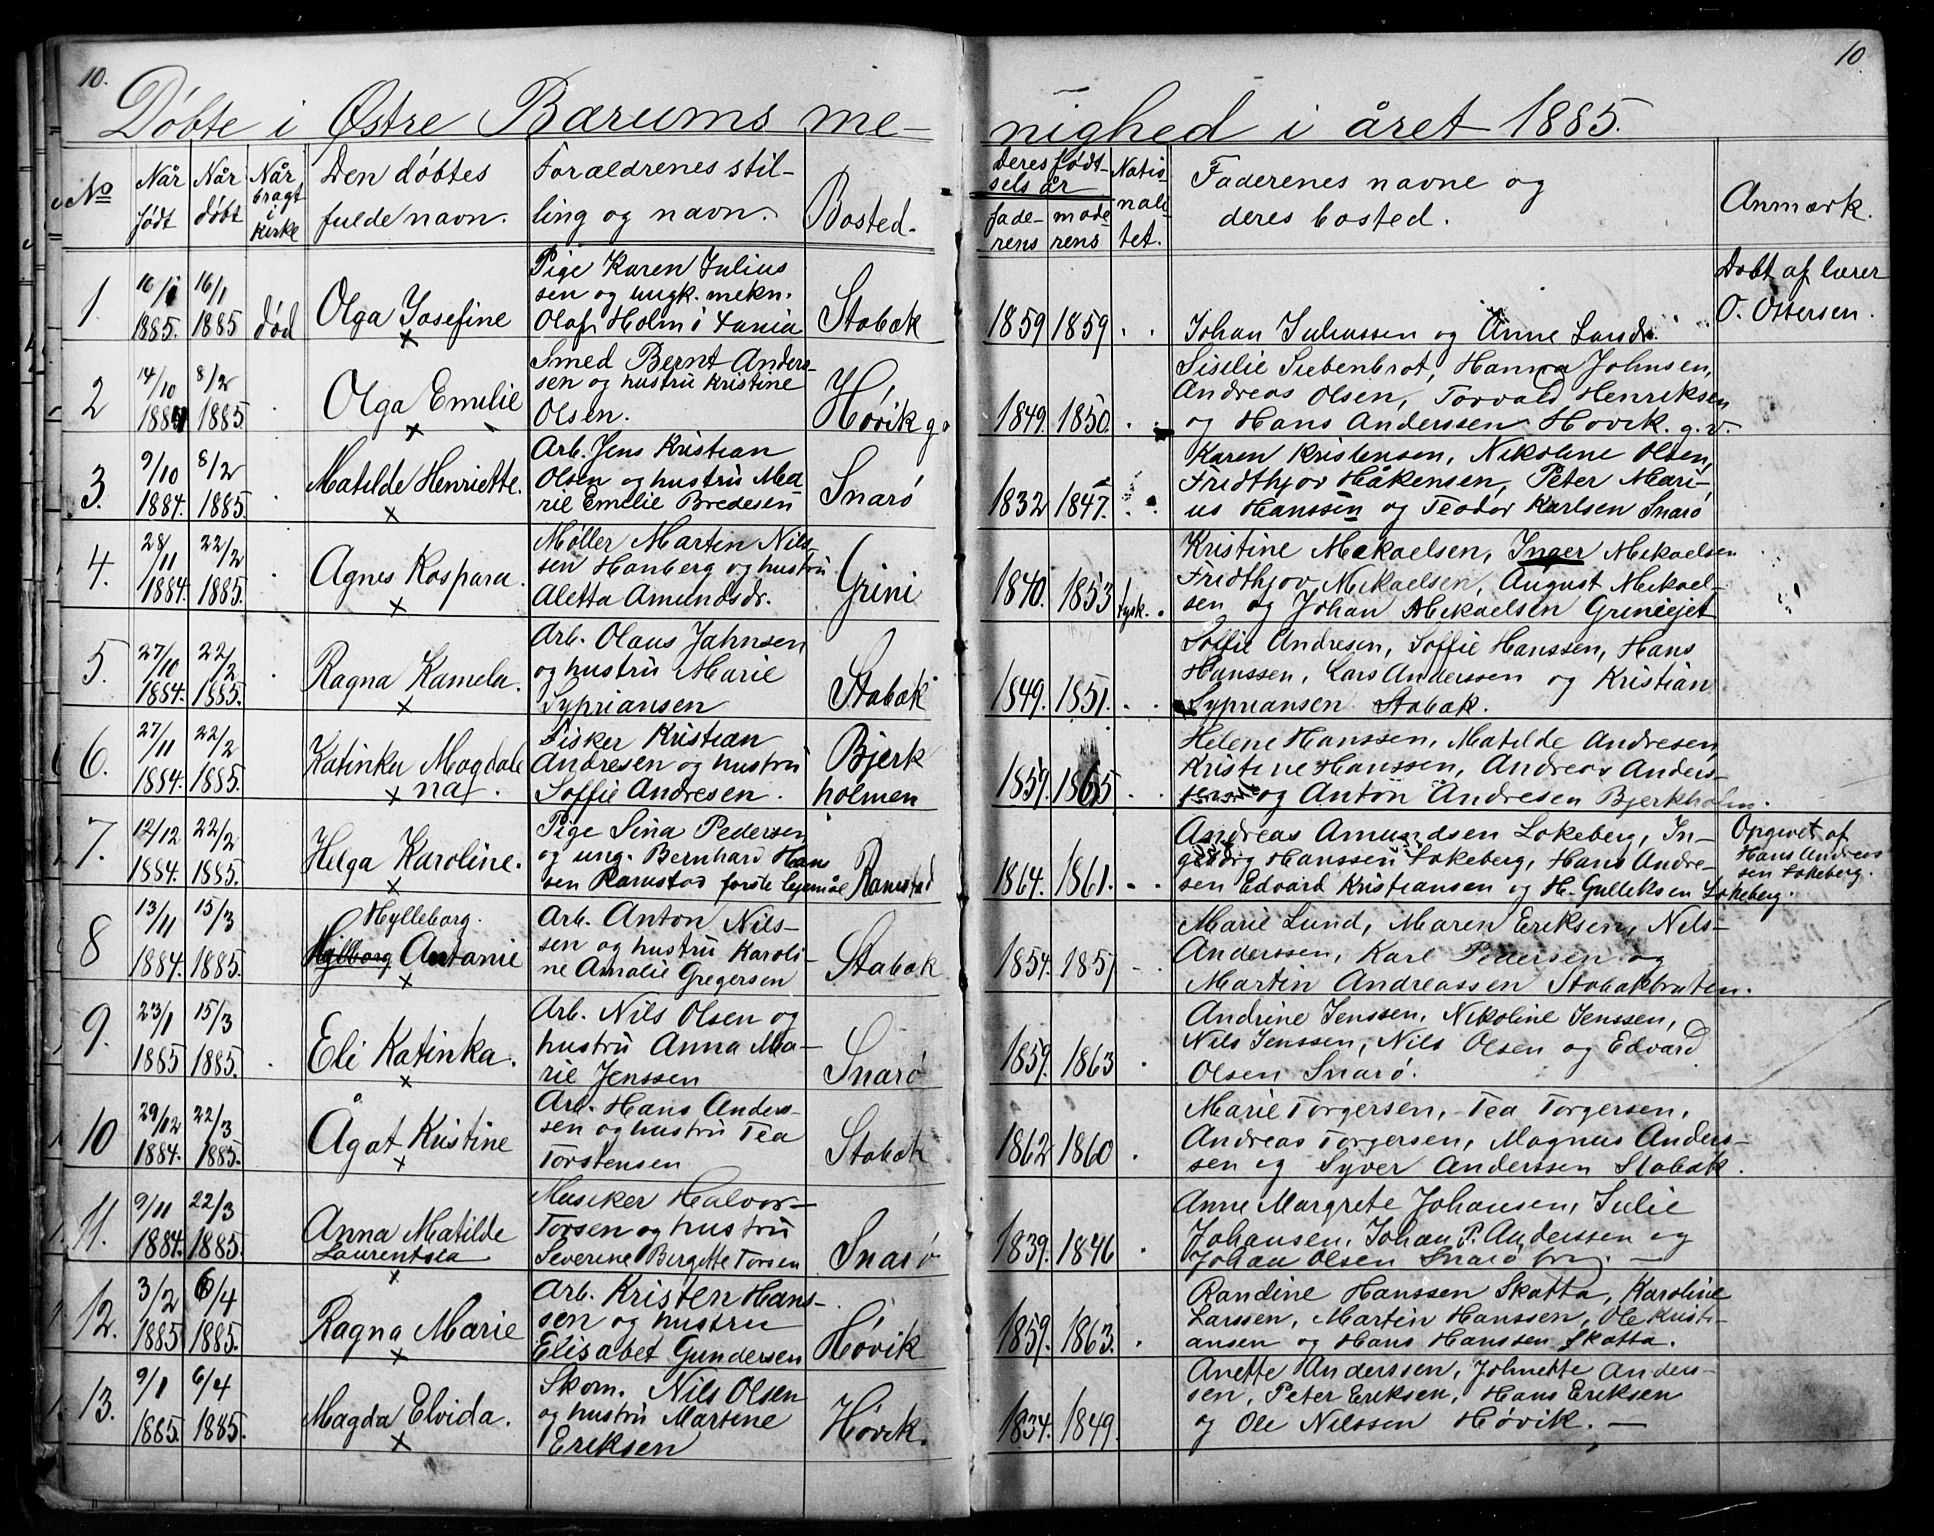 10.
10
Døbte i Østre Bærums me-
nighed i året 1885.
No
Når
født
Når
døbt
Når
bragt
i
kirke
Den døbtes
fulde navn.
Forældrenes stil-
ling og navn.
Bosted.
Deres født-
sels år
fade-
rens
mode
rens
Natio-
nali-
tet.
Faderenes navne og
deres bosted.
Anmærk.
1
16/1
1885.
16/1
1885
død
Olga Josefine
Pige Karen Julius
sen og ungk. mekn.
Olaf Holm i
Stabæk
1859
1859
Johan Juliussen og Anne Larsdr.
Døbt af lærer
O. Ottersen.
2
14/10
1884
8/2
1885.
Olga Emilie
Smed Bernt Anders-
sen og hustru Kristine
Olsen.
Høvik g.
1849.
1850.
Siselie Siebenbrot, Hanna Johnsen,
Andreas Olsen, Torvald Henriksen
og Hans Anderssen Høvik. g.v.
3.
9/10
1884.
8/2
1885.
Matilde Henriette.
Arb. Jens Kristian
Olsen og hustru Ma-
rie Emilie Bredesen
Snarø
1832
1847.
Karen Kristensen, Nikoline Olsen,
Fridthjov Håkensen, Peter Mari-
us Hanssen og Teodor Karlsen Snarø
4.
28/11
1884.
22/2
1885.
Agnes Kaspara.
Møller Martin Nils-
sen Hanberg og hustru
Aletta Amundsdr.
Grini
1840.
1853
tysk.
Kristine Mekaelsen, Inger Mekaelsen
Fridthjov Mekaelsen, August Mekael-
sen og Johan Mekaelsen Griniejet
5.
27/10
1884.
22/2
1885.
Ragna Kamela.
Arb. Olaus Jahnsen
og hustru Marie
Sypriansen
Stabæk
1849.
1851.
Soffie Andresen, Soffie Hanssen, Hans
Hanssen, Lars Anderssen og Kristian
Sypriansen Stabæk.
6.
27/11
1884.
22/2
1885.
Katinka Magdale
na.
Fisker Kristian
Andresen og hustru
Soffie Andresen.
Bjerk
holmen
1859.
1865
Helene Hanssen, Matilde Andresen,
Kristine Hanssen, Andreas Anders-
sen og Anton Andresen Bjerkholm.
7.
12/12
1884.
22/2
1885.
Helga Karoline.
Pige Lina Pedersen
og ung. Bernhard Hans
sen Ramstad første lejemål
Ramstad
1864.
1861.
Andreas Amundsen Løkeberg, In-
geborg Hanssen Løkeberg, Hans Andre-
sen Edvard Kristiansen og H. Gulleksen Løkeberg.
Opgivet af
Hans Andreas
sen Løkeberg.
8
13/11
1884.
15/3
1885.
Hylleborg.
Antonie
Arb. Anton Nils-
sen og hustru Karoli-
ne Amalie Gregersen
Stabæk
1854.
1857
Marie Lund, Maren Eriksen, Nils-
Anderssen, Karl Pedersen og
Martin Andreassen Stabækbraten.
9.
23/1
1885
15/3
1885.
Eli Katinka.
Arb. Nils Olsen og
hustru Anna Ma-
rie Jenssen
Snarø
1859.
1863
Andrine Jenssen, Nikoline Jenssen,
Nils Jenssen, Nils Olsen og Edvard
Olsen Snarø.
10
29/12
1884.
22/3
1885.
Ågat Kristine
Arb. Hans Anders-
sen og hustru Tea
Torstensen
Stabæk
1862
1860
Marie Torgersen, Tea Torgersen,
Andreas Torgersen, Magnus Anders-
sen og Syver Anderssen Stabæk.
11.
9/11
1884.
22/3
1885.
Anna Matilde
Laurentsea
Musiker Halvor-
Torsen og hustru
Severine Bergette Torsen
Snarø
1839.
1846
Anne Margrete Johansen, Julie
Johansen, Johan P. Anderssen og
Johan Olsen Snarø brug.
12.
3/2
1885
6/4
1885.
Ragna Marie
Arb. Kristen Hans-
sen og hustru
Elisabet Gundersen
Høvik
1859.
1863.
Randine Hanssen Skatta, Karoline
Larssen, Martin Hanssen, Ole Kristi-
ansen og Hans Hanssen Skatta.
13.
9/1
1885.
6/4
1885.
Magda Elvida.
Skom. Nils Olsen
og hustru Martine
Eriksen
Høvik.
1834.
1849.
Anette Anderssen, Johnette Anders-
sen, Peter Eriksen, Hans Eriksen
og Ole Nilssen Høvik.